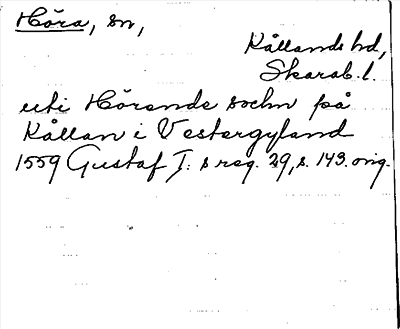 Höra, sn,
Kållands hd,
Skarab. l.
uti Hörende sochn på
Kållan i Vestergylland
1559 Gustaf I:s reg. 29, s. 143. orig.